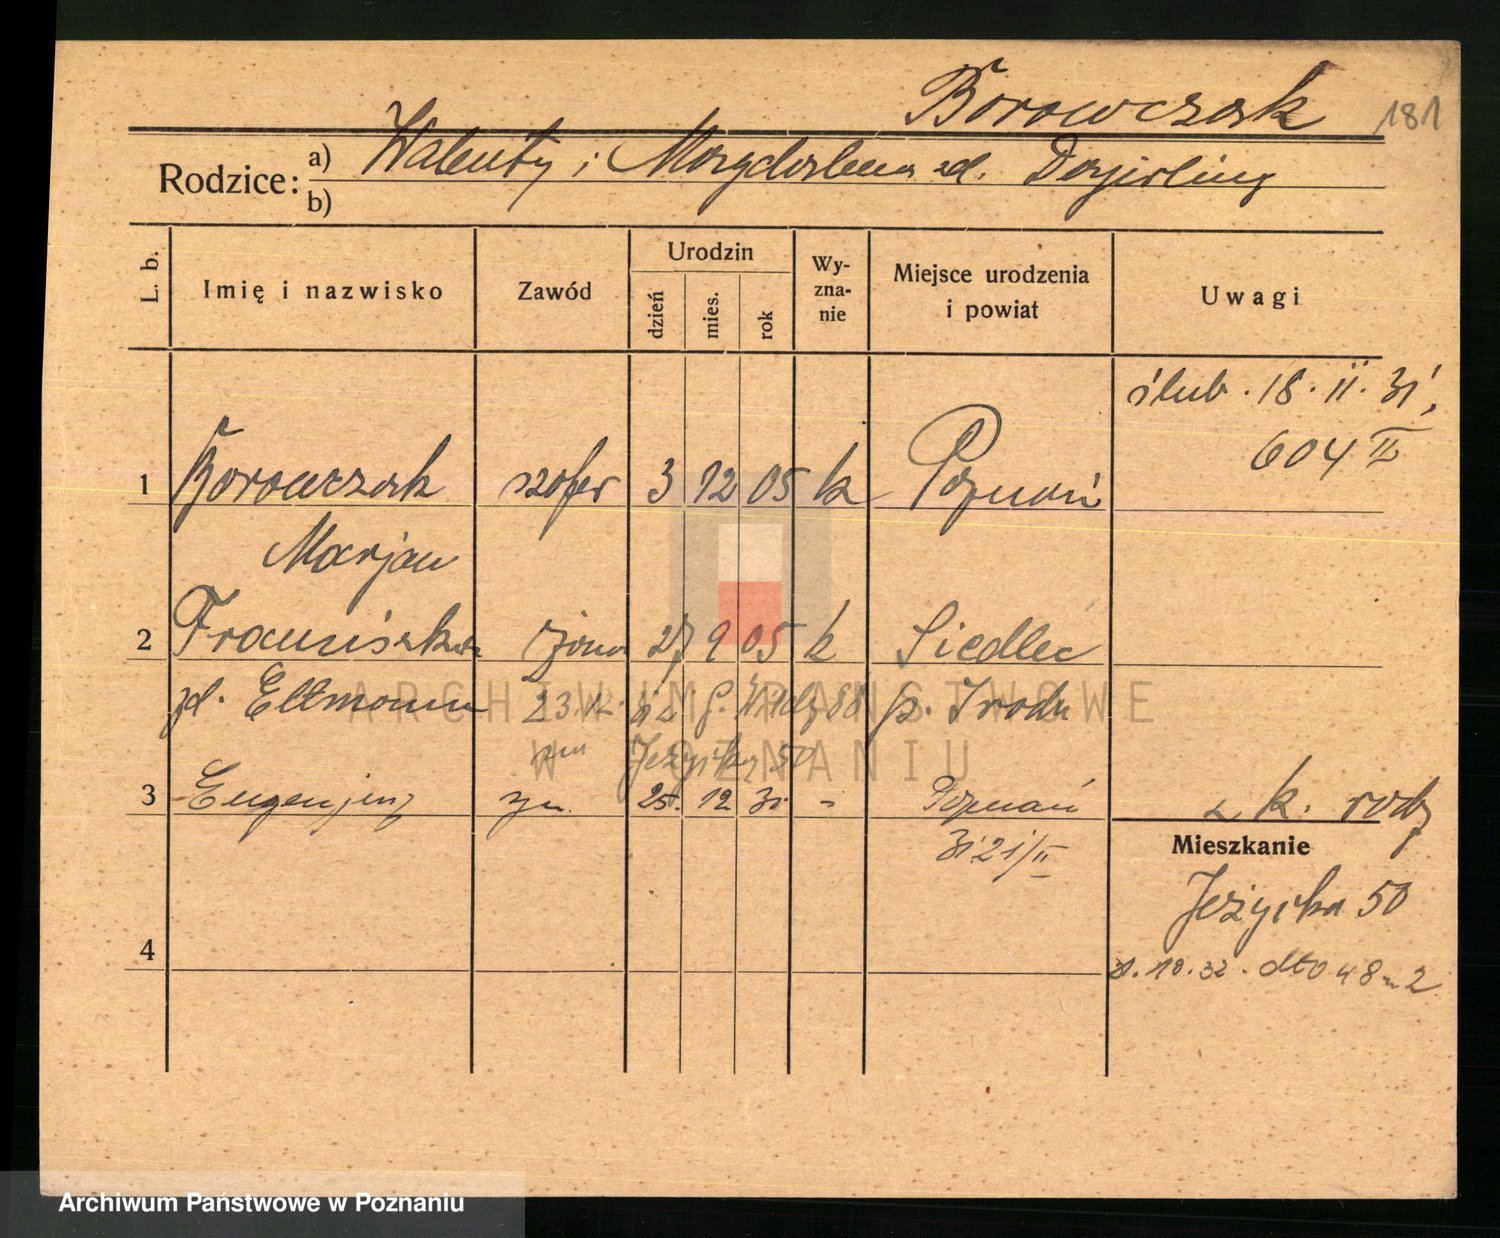 Borowczak 181
Rodzice: a) Walenty i Magdalena zd.
b)
L. b. Imię i nazwisko Zawód Urodzin dzień mies. rok Wy-zna-nie Miejsce urodzenia i powiat Uwagi
ślub. 18. II. 31,
604 II
1 Borowczak szofer 3 12 05 k Poznań
Marjan
2 Franciszka żona 27 9 05 k Siedlec
zd. Eltmann 23.12. G. 88 p. Środa
Jeżycka 50
3 Eugenjusz syn. 25. 12 31 - Poznań k. rodz
3121/II
Mieszkanie
Jeżycka 50
4
1.10.32. dto 48 m 2
ARCHIWUM PAŃSTWOWE
W POZNANIU
Archiwum Państwowe w Poznaniu